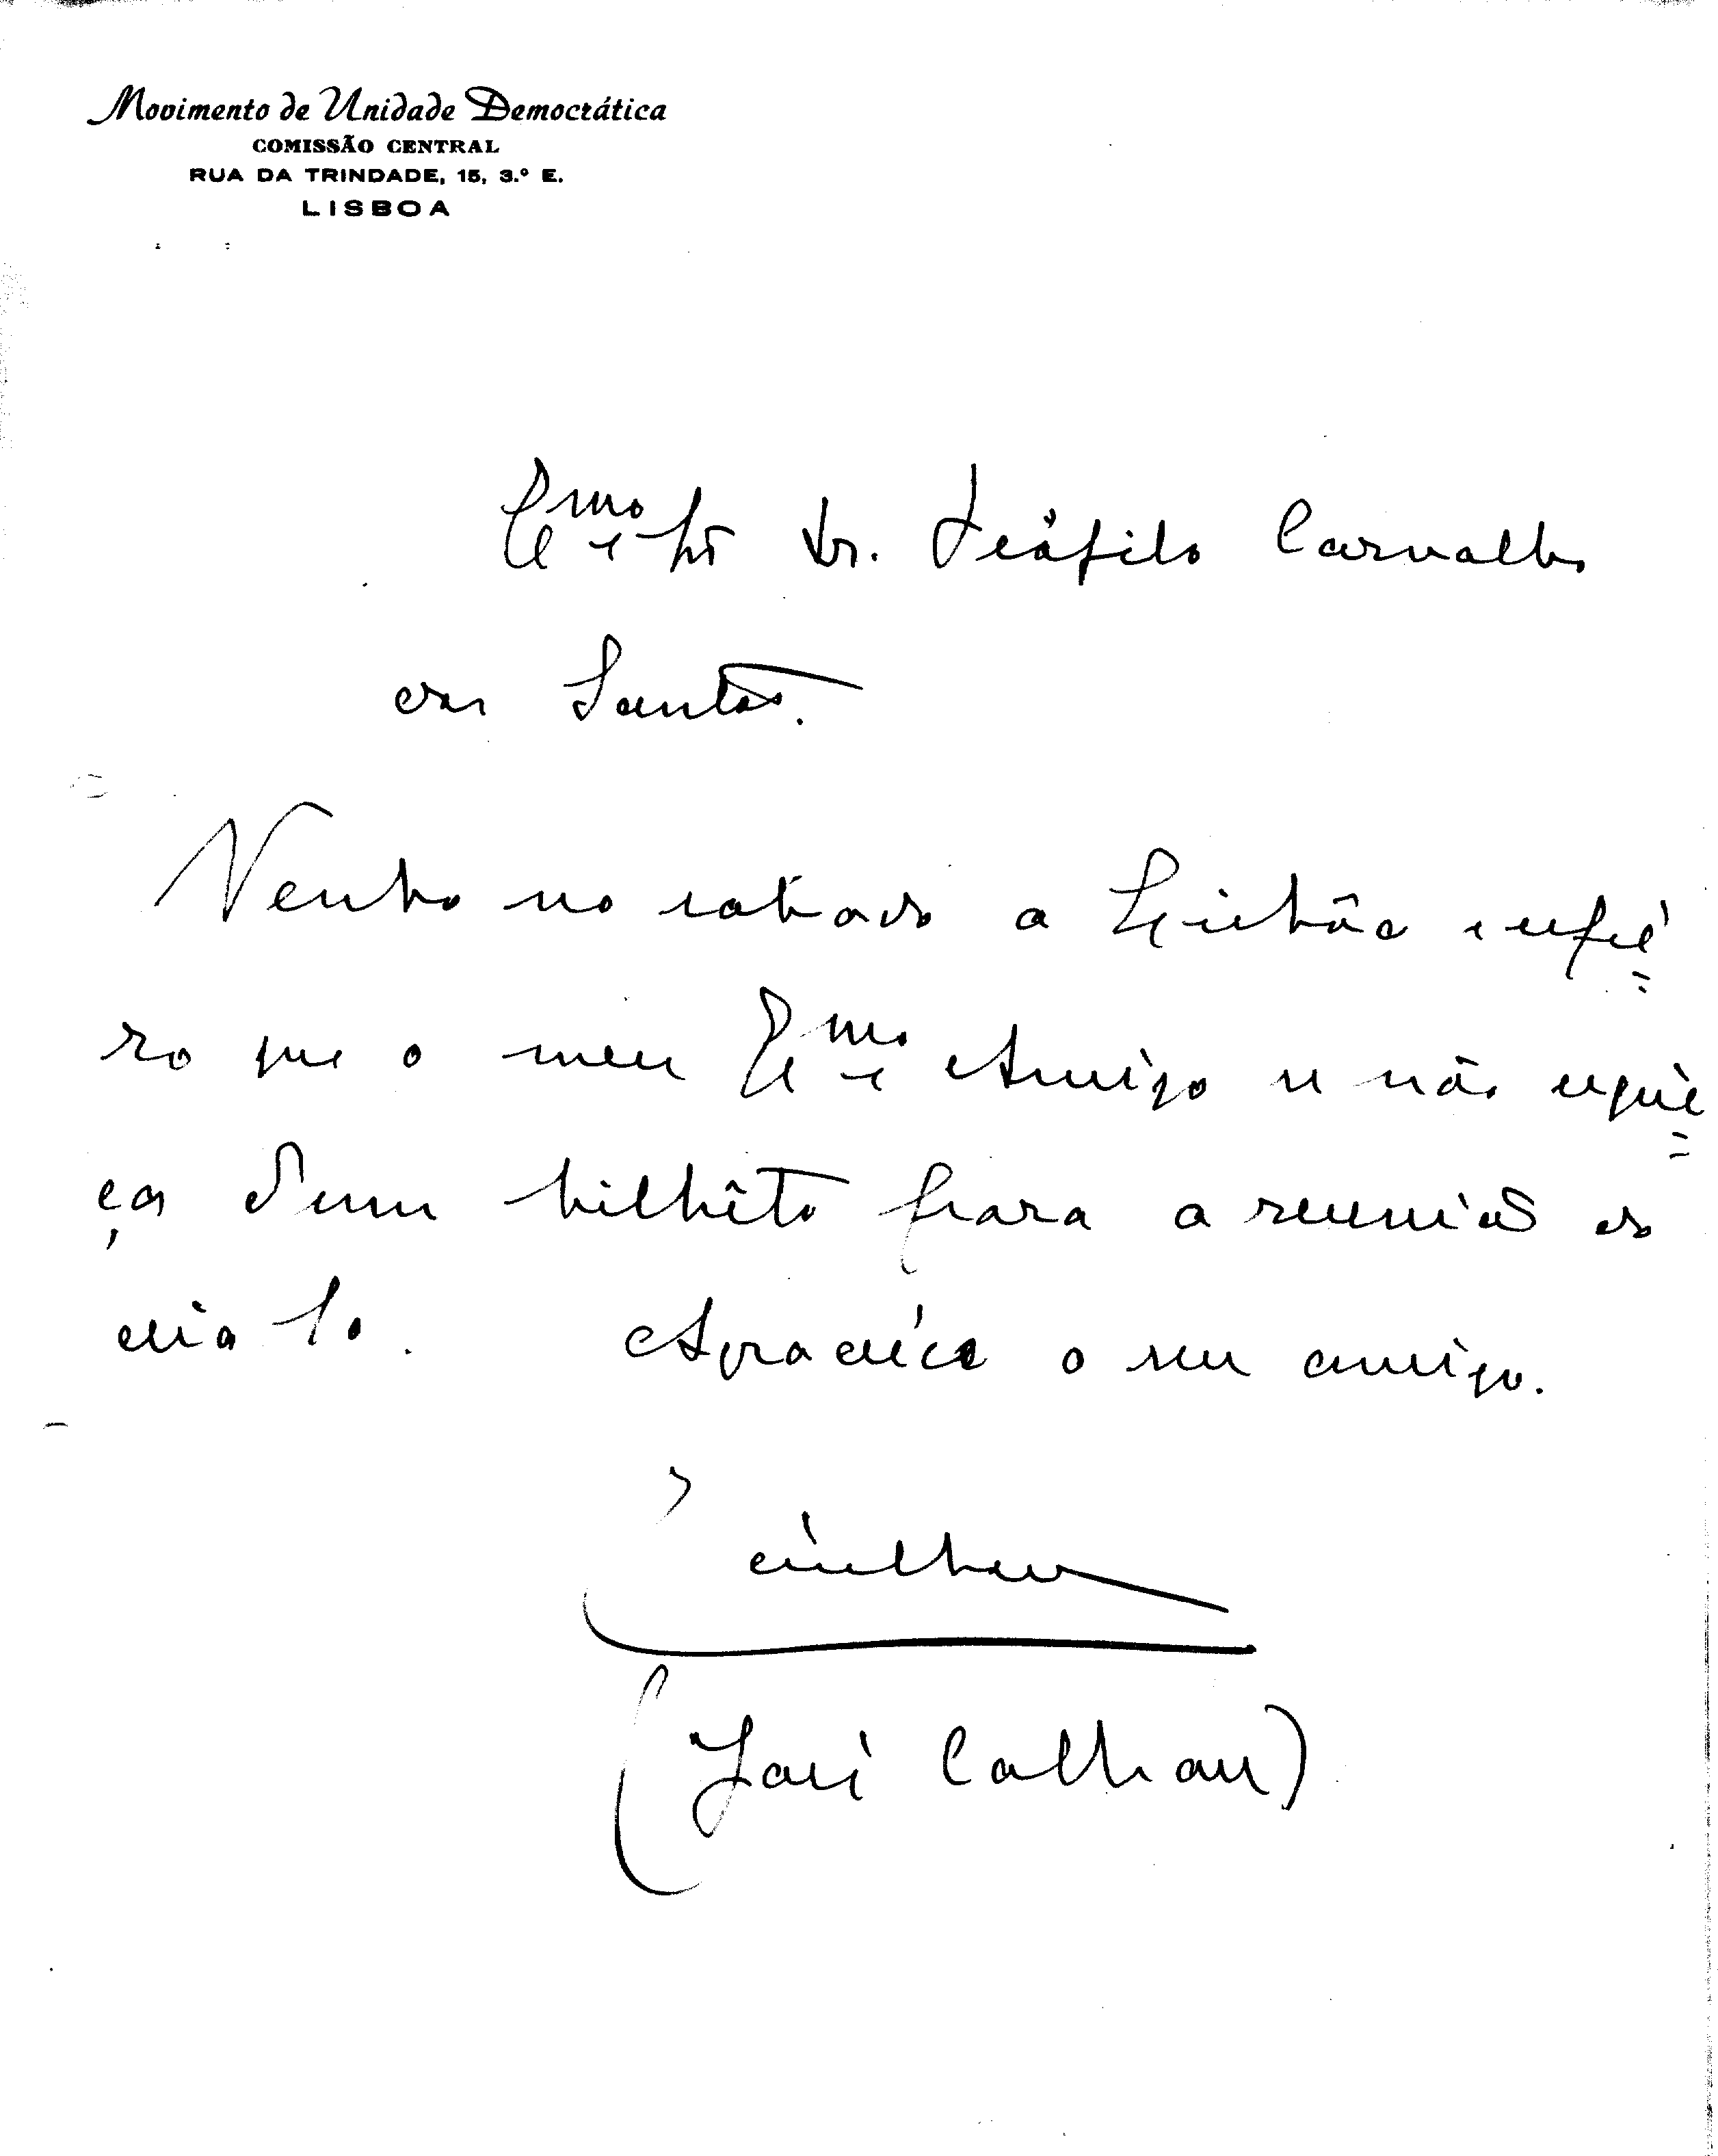 Movimento de Unidade Democrática
COMISSÃO CENTRAL
RUA DA TRINDADE, 15, 3.º E.
LISBOA
Exmo Sr Dr. Teófilo Carvalho
dos Santos.
Venho no sábado a Lisbôa e espé=
ro que o meu Exmo Amigo se não esqué=
ça dum bilhête para a reunião do
dia 10. Agradéce o seu amigo.
(José Calhau)